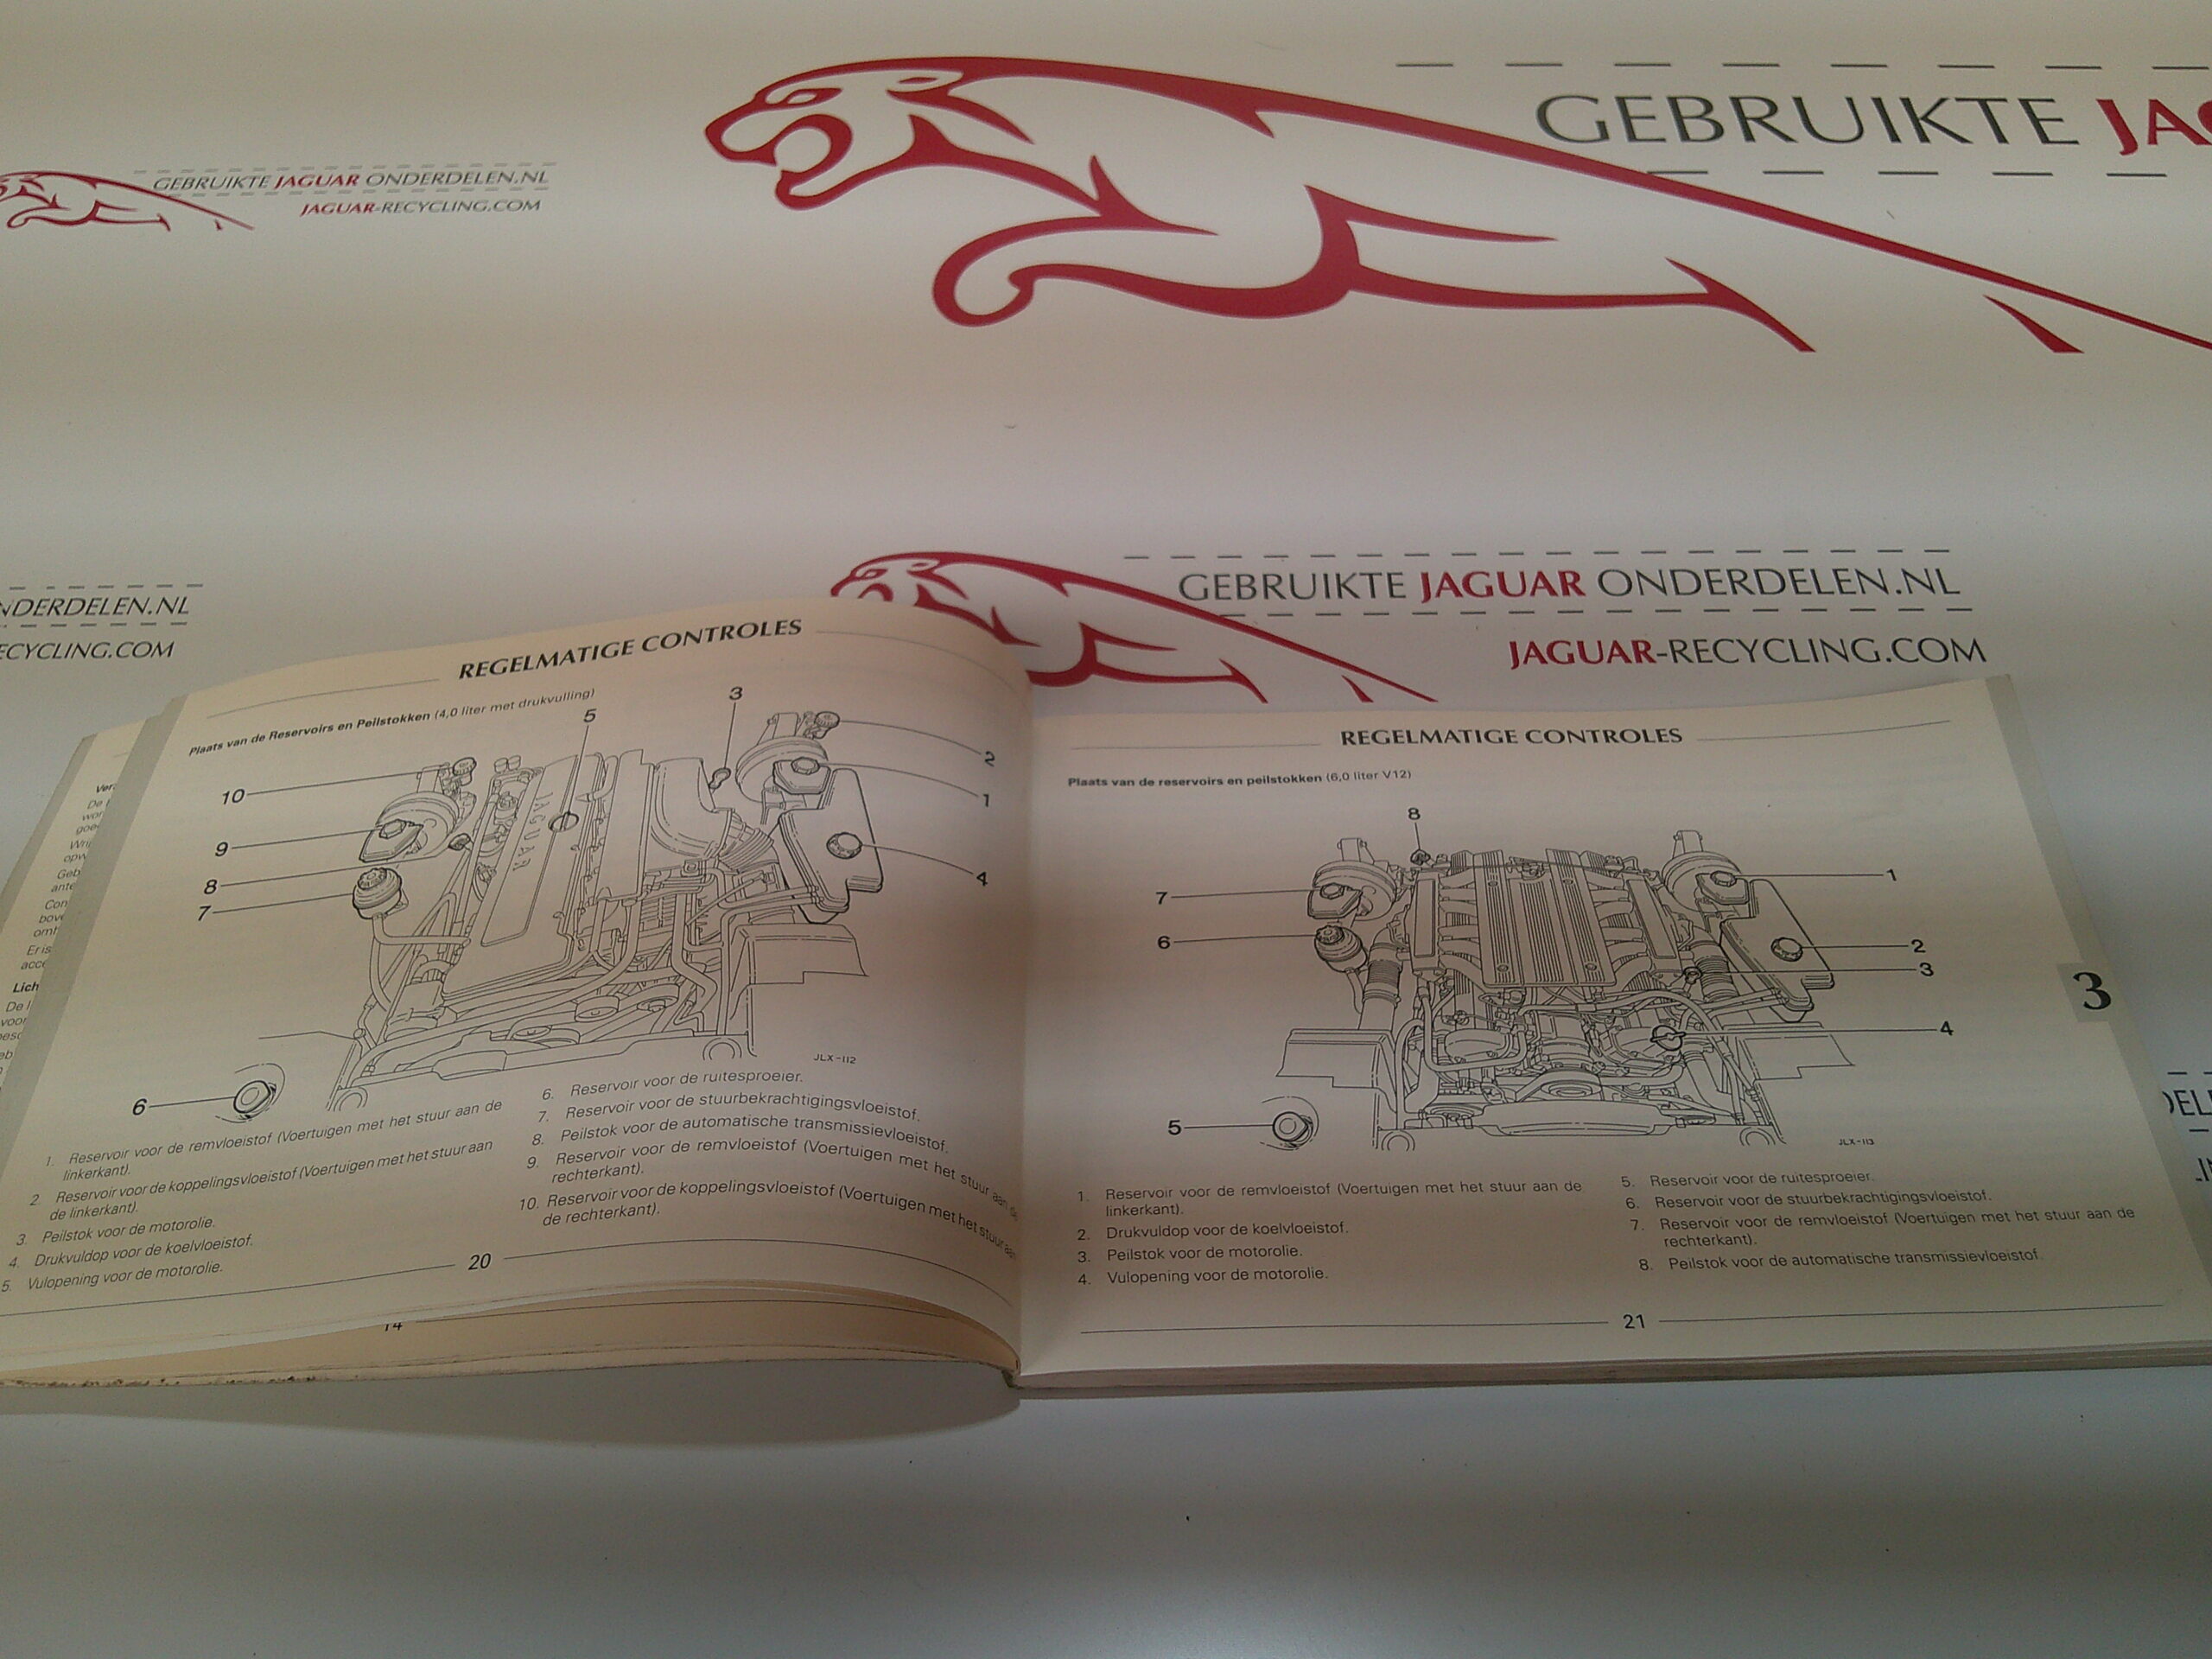 GEBRUIKTE
GEBRUIKTE JAGUAR ONDERDELEN.NL
JAGUAR-RECYCLING.COM
GEBRUIKTE JAGUAR ONDERDELEN.NL
JAGUAR-RECYCLING.COM
NDERDELEN.NL
ECYCLING.COM
REGELMATIGE CONTROLES
Plaats van de Reservoirs en Peilstokken (4,0 liter met drukvulling)
3
5
2
10
1
9
8
4
7
JAGUAR
JLX-112
6
1. Reservoir voor de remvloeistof (Voertuigen met het stuur aan de
linkerkant).
2 Reservoir voor de koppelingsvloeistof (Voertuigen met het stuur aan
de linkerkant).
3 Peilstok voor de motorolie.
4. Drukvuldop voor de koelvloeistof.
5. Vulopening voor de motorolie.
6. Reservoir voor de ruitesproeier.
7. Reservoir voor de stuurbekrachtigingsvloeistof.
8. Peilstok voor de automatische transmissievloeistof.
9. Reservoir voor de remvloeistof (Voertuigen met het stuur aan de
rechterkant).
10. Reservoir voor de koppelingsvloeistof (Voertuigen met het stuur aan
de rechterkant).
20
14
REGELMATIGE CONTROLES
Plaats van de reservoirs en peilstokken (6,0 liter V12)
8
1
7
6
2
3
4
5
JLX-113
3
1. Reservoir voor de remvloeistof (Voertuigen met het stuur aan de
linkerkant).
2. Drukvuldop voor de koelvloeistof.
3. Peilstok voor de motorolie.
4. Vulopening voor de motorolie.
5. Reservoir voor de ruitesproeier.
6. Reservoir voor de stuurbekrachtigingsvloeistof.
7. Reservoir voor de remvloeistof (Voertuigen met het stuur aan de
rechterkant).
8. Peilstok voor de automatische transmissievloeistof.
21